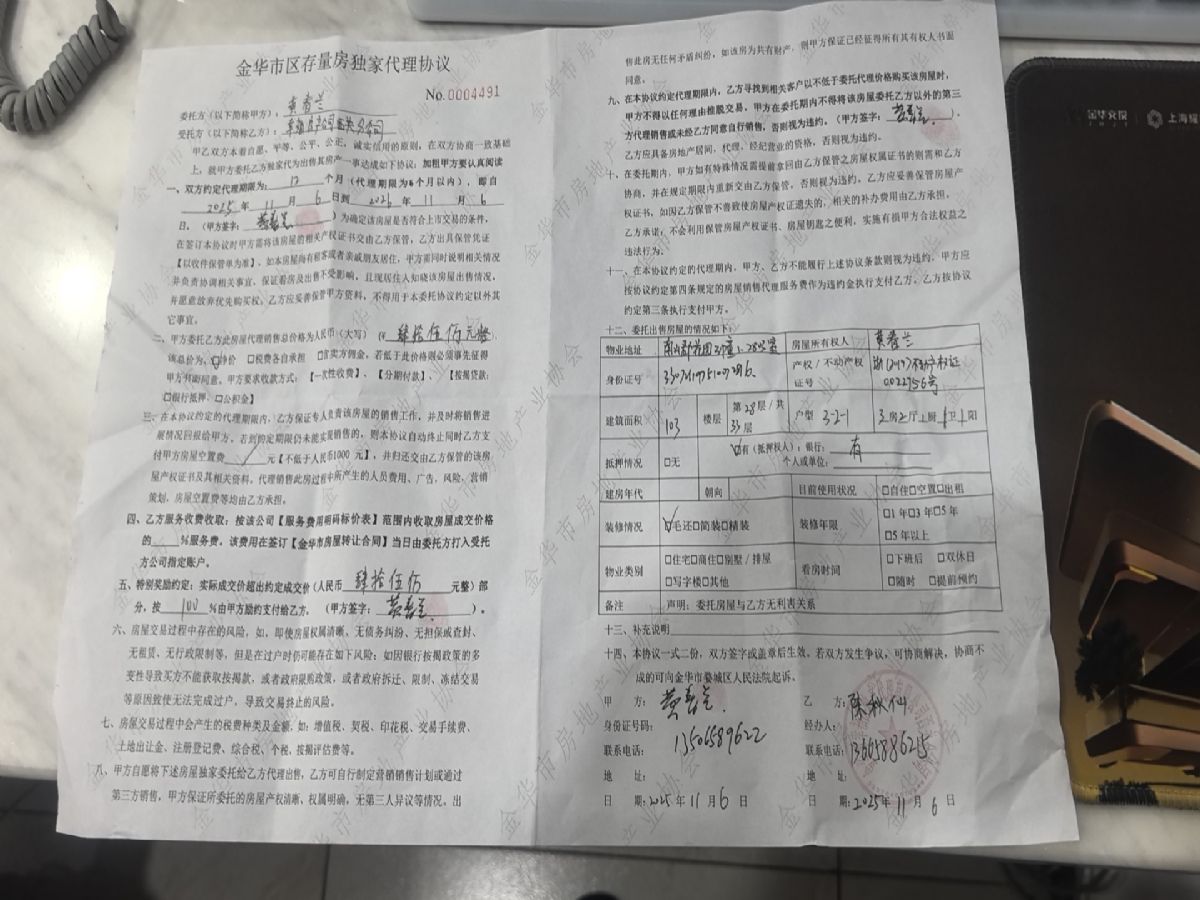 金华市区存量房独家代理协议
No.0004491
委托方（以下简称甲方）：黄春兰
受托方（以下简称乙方）：
甲乙双方本着自愿、平等、公平、公正、诚实信用的原则，在双方协商一致基础
上，就甲方委托乙方独家代为出售其房产一事达成如下协议：加粗甲方要认真阅读
一、双方约定代理期限为：12个月（代理期限为6个月以内），即自
2025年11月6日到2026年11月6
日。（甲方签字：黄春兰）为确定该房屋是否符合上市交易的条件，
在签订本协议时甲方需将该房屋的相关产权证书交由乙方保管，乙方出具保管凭证
【以收件保管单为准】、如本房屋尚有租客或者亲戚朋友居住，甲方需同时说明相关情况
并负责协调相关事宜，保证看房及出售不受影响，且现居住人知晓该房屋出售情况，
并愿意放弃优先购买权。乙方应妥善保管甲方资料，不得用于本委托协议约定以外其
它事宜。
二、甲方委托乙方此房屋代理销售总价格为人民币（大写）肆拾伍佰元整
该总价为，☑净价 □税费各自承担 □含实方佣金，若低于此价格则必须事先征得
甲方书面同意。甲方要求收款方式：【一次性收费】、【分期付款】、【按揭贷款：
□银行抵押、□公积金】
三、在本协议约定的代理期限内、乙方保证专人负责该房屋的销售工作，并及时将销售进
展情况回报给甲方。若到约定期限仍未能实现销售的，则本协议自动终止同时乙方支
付甲方房屋空置费 / 元【不低于人民币1000 元】，并归还交由乙方保管的该房
屋产权证书及其相关资料，代理销售此房过程中所产生的人员费用、广告，风险，营销
策划，房屋空置费等均由乙方承担。
四、乙方服务收费收取：按该公司【服务费用明码标价表】范围内收取房屋成交价格
的 %服务费。该费用在签订【金华市房屋转让合同】当日由委托方打入受托
方公司指定账户。
五、特别奖励约定：实际成交价超出约定成交价（人民币 肆拾伍佰 元整）部
分，按 100 %由甲方励约支付给乙方。（甲方签字：黄春兰）。
六、房屋交易过程中存在的风险，如，即使房屋权属清晰、无债务纠纷、无担保或查封、
无租赁、无行政限制等，但是在过户时仍可能存在如下风险：如因银行按揭政策的多
变性导致买方不能获取按揭款，或者政府限购政策，或者政府拆迁、限制、冻结交易
等原因致使无法完成过户，导致交易终止的风险。
七、房屋交易过程中会产生的税费种类及金额，如：增值税、契税、印花税、交易手续费、
土地出让金、注册登记费、综合税、个税，按揭评估费等。
八、甲方自愿将下述房屋独家委托给乙方代理出售，乙方可自行制定营销销售计划或通过
第三方销售，甲方保证所委托的房屋产权清晰、权属明确，无第三人异议等情况。出
售此房无任何矛盾纠纷，如该房为共有财产，则甲方保证已经征得所有其有权人书面
同意。
九、在本协议约定代理期限内，乙方寻找到相关客户以不低于委托代理价格购买该房屋时，
甲方不得以任何理由推脱交易，甲方在委托期内不得将该房屋委托乙方以外的第三
方代理销售或未经乙方同意自行销售，否则视为违约。（甲方签字：黄春兰）.
乙方应具备房地产居间、代理、经纪营业的资格，否则视为违约。
十、在委托期内，甲方如有特殊情况需提前拿回由乙方保管之房屋权属证书的则需和乙方
协商，并在规定期限内重新交由乙方保管，否则视为违约。乙方应妥善保管房屋产
权证书，如因乙方保管不善致使房屋产权证遗失的，相关的补办费用由乙方承担。
乙方承诺：不会利用保管房屋产权证书、房屋钥匙之便利，实施有损甲方合法权益之
违法行为。
十一、在本协议约定的代理期内，甲方、乙方不能履行上述协议条款则视为违约，甲方应
按协议约定第四条规定的房屋销售代理服务费作为违约金执行支付乙方。乙方按协议
约定第三条执行支付甲方。
十二、委托出售房屋的情况如下：
物业地址 房屋所有权人 黄春兰
身份证号 产权/不动产权证号 0022756号
建筑面积 103 楼层 第28层/共33层 户型 3-2-1 3房2厅1厨1卫1阳
抵押情况 □无 ☑有（抵押权人）：银行：有
个人或单位：
建房年代 朝向 目前使用状况 □自住□空置□出租
装修情况 ☑毛还□简装□精装 装修年限 □1年□3年□5年
□5年以上
物业类别 □住宅□商住□别墅/排屋
□写字楼□其他 看房时间 □下班后 □双休日
□随时 □提前预约
备注 声明：委托房屋与乙方无利害关系
十三、补充说明
十四、本协议一式二份，双方签字或盖章后生效。若双方发生争议，可协商解决，协商不
成的可向金华市婺城区人民法院起诉。
甲 方：黄春兰 乙 方：陈秋仙
身份证号码： 经办人：
联系电话：13506589622 联系电话：13665886215
地 址： 地 址：
日 期：2025年11月6日 日 期：2025年11月6日